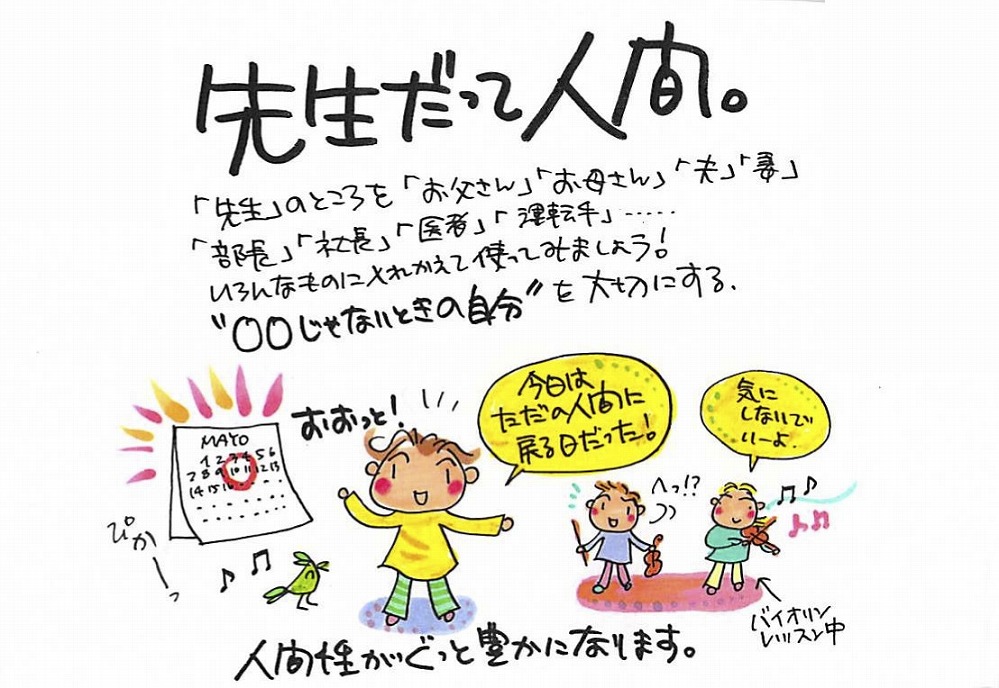 先生だって人間。
「先生」のところを「お父さん」「お母さん」「夫」「妻」
「部長」「社長」「医者」「運転手」……
いろんなものに入れかえて使ってみましょう!
“○○じゃないときの自分”を大切にする.
おおっと!
今日は
ただの人間に
戻る日だった!
気に
しないで
いーよ.
MAYO
1 2 3 4 5 6
7 8 9 10 11 12 13
14 15 16
ぴかーっ
へっ!?
バイオリン
レッスン中
人間性がぐっと豊かになります。